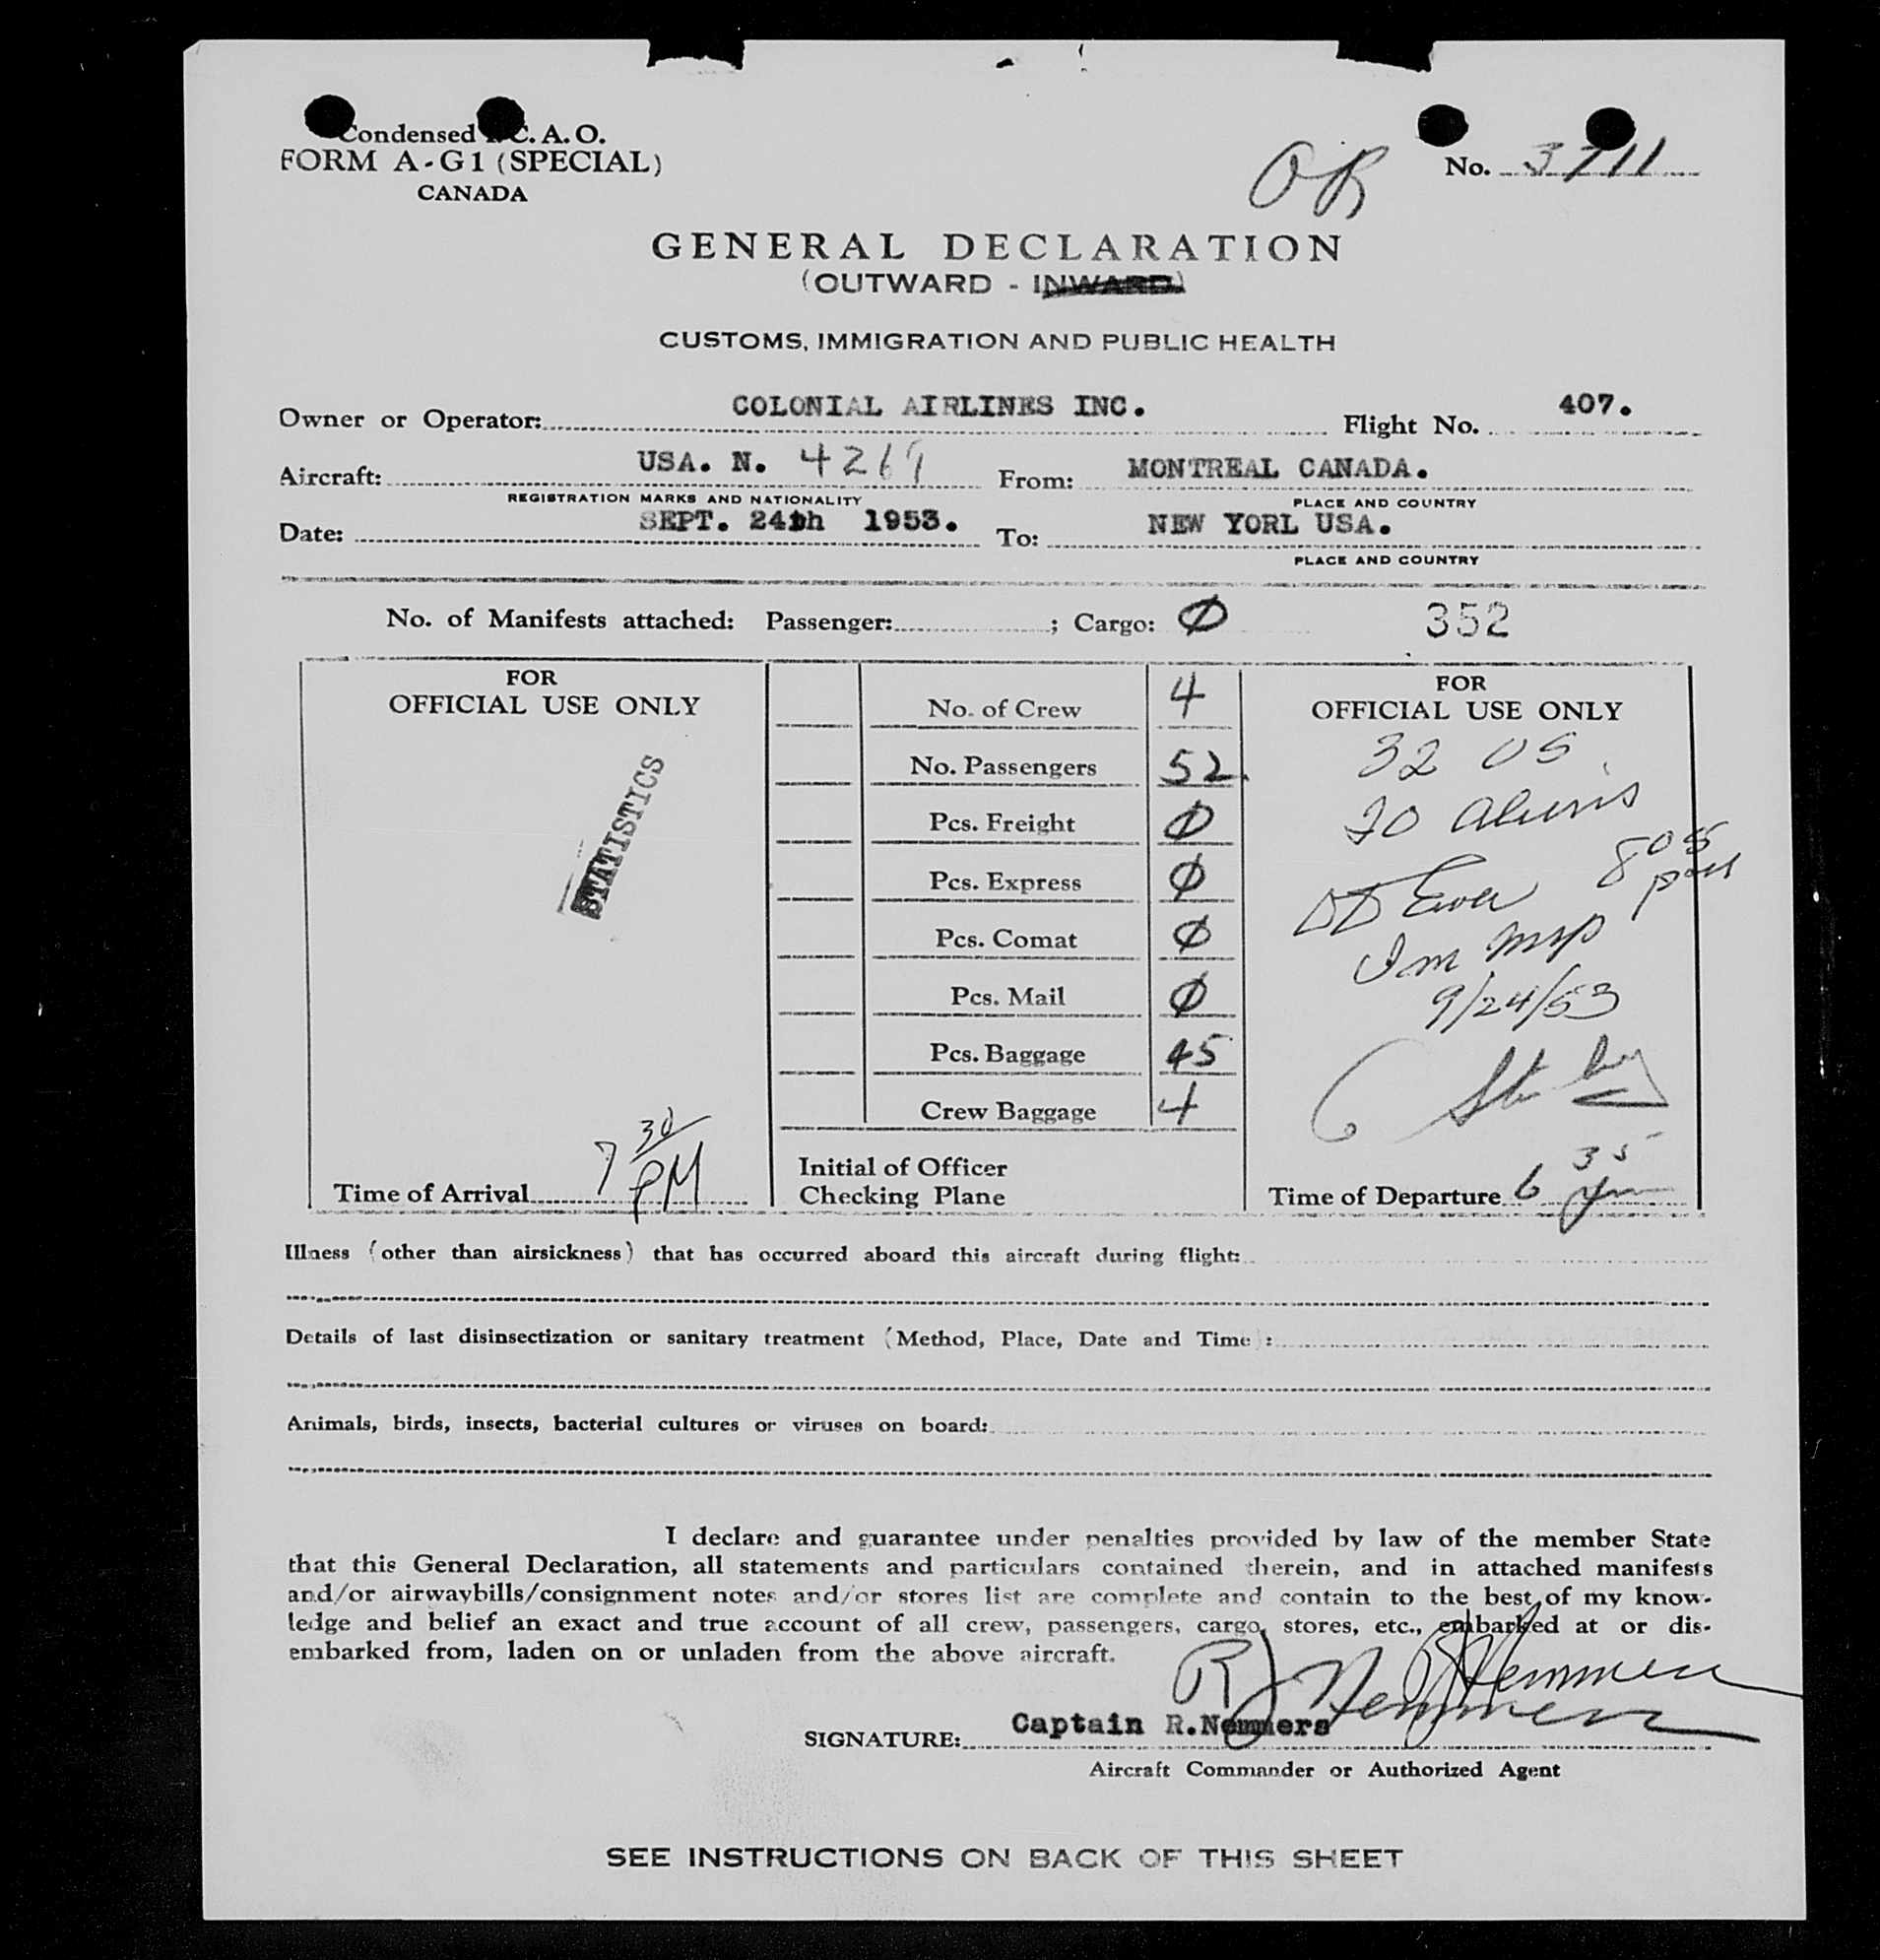 Condensed C. A. O.
FORM A-G1 (SPECIAL)
CANADA
No. 3711
GENERAL DECLARATION
(OUTWARD - INWARD)
CUSTOMS, IMMIGRATION AND PUBLIC HEALTH
Owner or Operator: COLONIAL AIRLINES INC. Flight No. 407.
Aircraft: USA. N. 4269 From: MONTREAL CANADA.
REGISTRATION MARKS AND NATIONALITY PLACE AND COUNTRY
Date: SEPT. 24th 1953. To: NEW YORL USA.
PLACE AND COUNTRY
No. of Manifests attached: Passenger: ; Cargo: Ø 352
FOR
OFFICIAL USE ONLY
STATISTICS
Time of Arrival 7 30 PM
No. of Crew 4
No. Passengers 52
Pcs. Freight Ø
Pcs. Express Ø
Pcs. Comat Ø
Pcs. Mail Ø
Pcs. Baggage 45
Crew Baggage 4
Initial of Officer
Checking Plane
FOR
OFFICIAL USE ONLY
32 US
20 aliens
9/24/53
Time of Departure 6 35
Illness (other than airsickness) that has occurred aboard this aircraft during flight:
Details of last disinsectization or sanitary treatment (Method, Place, Date and Time):
Animals, birds, insects, bacterial cultures or viruses on board:
I declare and guarantee under penalties provided by law of the member State
that this General Declaration, all statements and particulars contained therein, and in attached manifests
and/or airwaybills/consignment notes and/or stores list are complete and contain to the best of my know-
ledge and belief an exact and true account of all crew, passengers, cargo, stores, etc., embarked at or dis-
embarked from, laden on or unladen from the above aircraft.
SIGNATURE: Captain R.Nemmers R Nemmers
Aircraft Commander or Authorized Agent
SEE INSTRUCTIONS ON BACK OF THIS SHEET